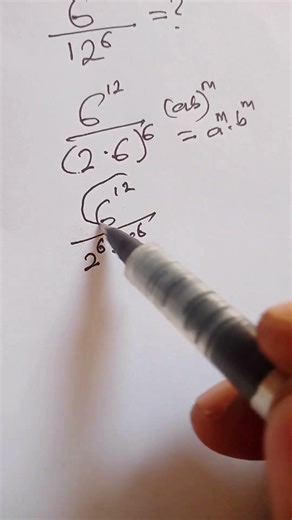 6
/ 12^6 = ?
6^12 / (2 · 6)^6
(ab)^m = a^m · b^m
6^12 / 2^6 · 6